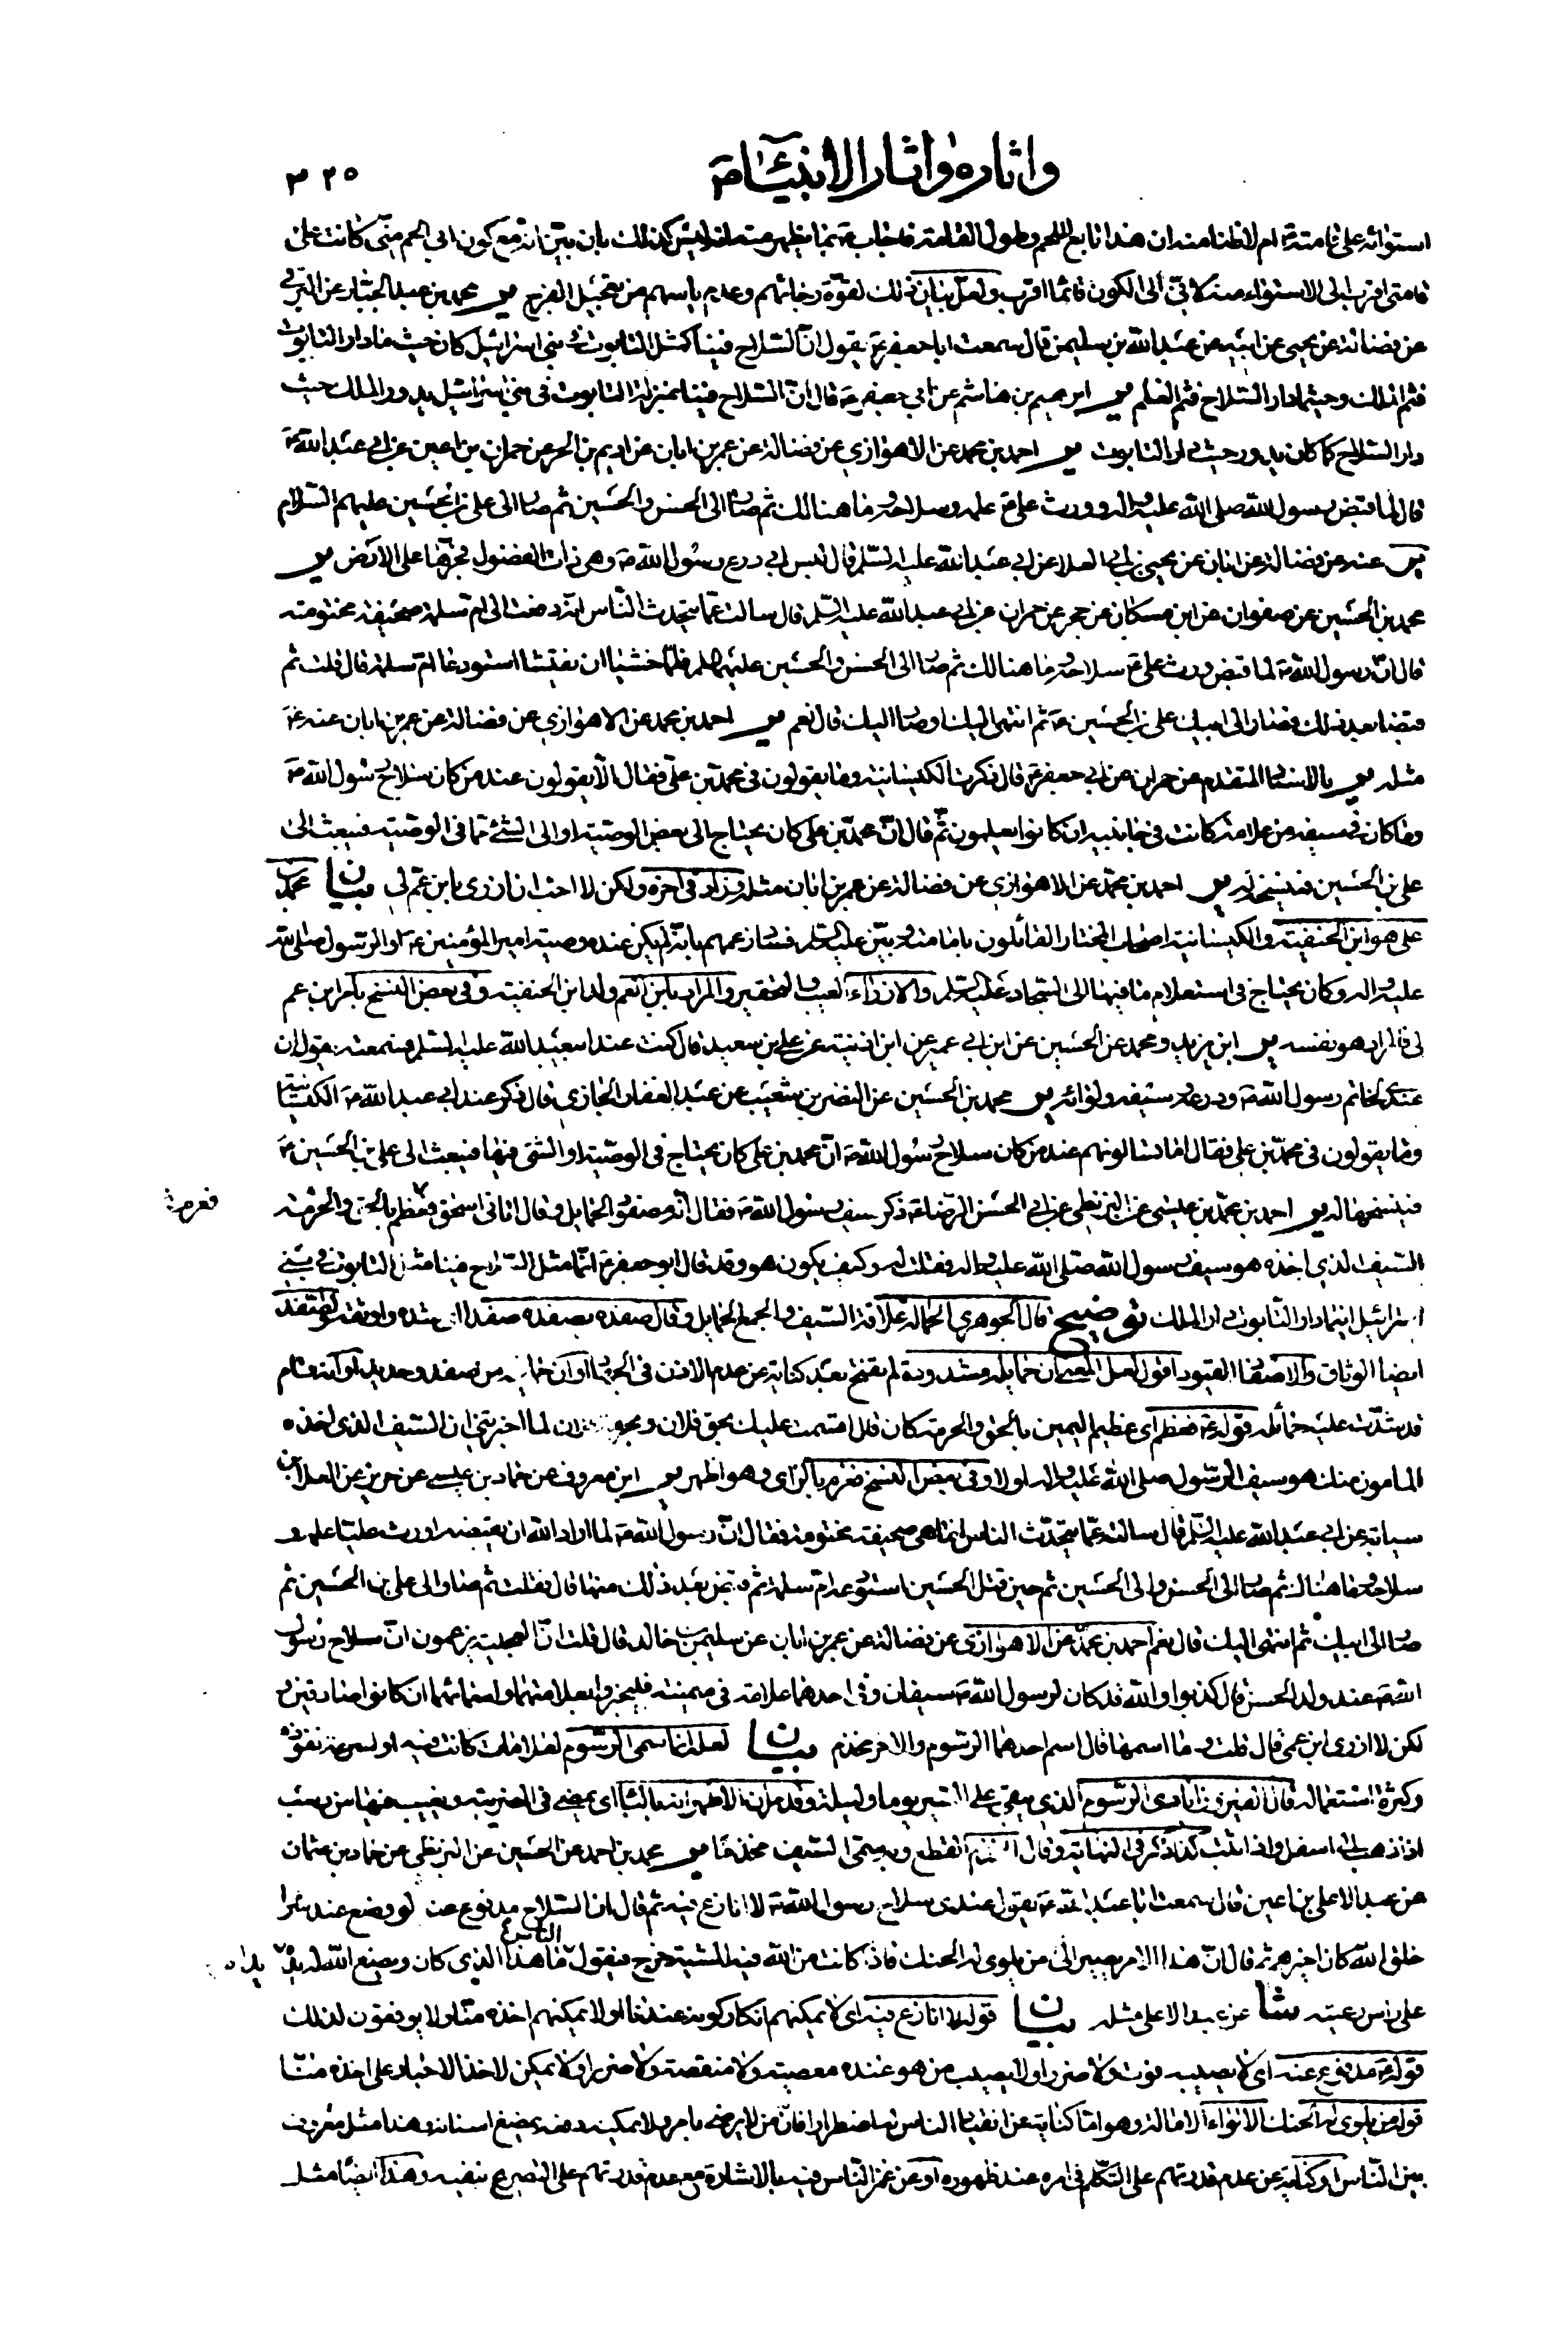 واثاره واثار الأنبياء ص ٣٢٥
استوائه على قامته ام لا ظنا منه ان هذا تابع اللحم وطول القامة فاجاب بما يظهر منه انه ليس كذلك بان بين انه مع كون ابي الحم مني كانت على
قامتي اقرب الى الاستواء منه لا فيّ الى الكون قائما اقرب ولعل بيان ذلك لقوة رجائهم وعدم ياسهم من تعجيل الفرج ير محمد بن عبد الجبار عن البرقي
عن فضالة عن يحيى عن ابيه عن عبد الله بن سليمن قال سمعت ابا جعفر ع يقول ان السلاح فينا كمثل التابوت في بني اسرائيل كان حيث ما دار التابوت
فثم الملك وحيثما دار السلاح فثم العلم ير ابرهيم بن هاشم عن ابي جعفر ع قال ان السلاح فينا بمنزلة التابوت في بني اسرائيل يدور الملك حيث
دار السلاح كما كان يدور حيث دار التابوت ير احمد بن محمد عن الاهوازي عن فضالة عن عمر بن ابان عن اديم بن الحر عن حمران بن اعين عن ابي عبد الله ع
قال لما قبض رسول الله صلى الله عليه واله وورث علي ع علمه وسلاحه وما هنالك ثم صار الى الحسن والحسين ثم صار الى علي بن الحسين عليهم السلام
ير عنه عن فضالة عن ابان عن يحيى بن ابي العلا عن ابي عبد الله عليه السلم قال لبس ابي درع رسول الله ص وهي ذات الفضول فجرها على الارض ير
محمد بن الحسين عن صفوان عن ابن مسكان عن حجر عن حمران عن ابي عبد الله عليه السلم قال سالته عما يتحدث الناس انه دفعت الى ام سلمة صحيفة مختومة
قال ان رسول الله ص لما قبض ورث علي ع سلاحه وما هنالك ثم صار الى الحسن والحسين عليهما السلم فلما خشيا ان يفتشا استودعا ام سلمة قال قلت ثم
قبضا بعد ذلك فصار الى ابيك علي بن الحسين ع ثم انتهى اليك او صار اليك قال نعم ير احمد بن محمد عن الاهوازي عن فضالة عن عمر بن ابان عنه ع
مثله ير بالاسناد المتقدم عن حمران عن ابي جعفر ع قال ذكرت الكيسانية وما يقولون في محمد بن علي فقال الا يقولون عند من كان سلاح رسول الله ص
وما كان في سيفه من علامة كانت في جانبيه ان كانوا يعلمون ثم قال ان محمد بن علي كان يحتاج الى بعض الوصية او الى الشئ مما في الوصية فيبعث الى
علي بن الحسين فينسخه له ير احمد بن محمد عن الاهوازي عن فضالة عن عمر بن ابان مثله وزاد في اخره ولكن لا احب ان ازري بابن عم لي بيان محمد بن
علي هو ابن الحنفية والكيسانية اصحاب المختار القائلون بامامته وبين عليه السلم فساد زعمهم بانه لم يكن عنده وصية امير المؤمنين ع ولا الرسول صلى الله
عليه واله وكان يحتاج في استعلام ما فيها الى السجاد عليه السلم والازراء العيب والتحقير والمراد بابن العم ولد ابن الحنفية وفي بعض النسخ بابن عم
لي فالمراد هو نفسه ير ابن يزيد ومحمد عن الحسين عن ابن ابي عمير عن ابن اذينة عن علي بن سعيد قال كنت عند ابيعبد الله عليه السلم فسمعته يقول ان
عندي لخاتم رسول الله ص ودرعه وسيفه ولوائه ير محمد بن الحسين عن النضر بن شعيب عن عبد الغفار الجازي قال ذكر عند ابي عبد الله ع الكيسانية
وما يقولون في محمد بن علي فقال اما تسالونهم عند من كان سلاح رسول الله ص ان محمد بن علي كان يحتاج في الوصية او الشئ فيها فيبعث الى علي بن الحسين ع
فينسخها له ير احمد بن محمد بن عيسى عن البزنطي عن ابي الحسن الرضا ع ذكر سيف رسول الله ص فقال انه مصفود الحمايل وقال اتاني اسحق فعظم بالحق والحرمة
فعزم
السيف الذي اخذه هو سيف رسول الله صلى الله عليه واله فقلت له وكيف يكون هو وقد قال ابو جعفر ع انما مثل السلاح فينا مثل التابوت في بني
اسرائيل اينما دار التابوت دار الملك توضيح قال الجوهري الحمالة علاقة السيف والجمع الحمايل وقال صفده يصفده صفدا اي شده واوثقه
ايضا الوثاق والاصفاد القيود اقول لعل المعنى ان حمايله مشدودة لم تفتح بعد كناية عن عدم الاذن في الجهاد او ان حمايله من صفد وحديد او انه
قد شدت عليه حمائله قوله ع فعظم اي عظيم اليمين بالحق والحرمة كان قال اقسمت عليك بحق فلان لما اخبرتني ان السيف الذي اخذه
المامون منك هو سيف الرسول صلى الله عليه واله او لا وفي بعض النسخ فعزم بالزاي وهو اظهر ير ابن معروف عن حماد بن عيسى عن حريز عن العلا بن
سيابة عن ابي عبد الله عليه السلم قال سالته عما يتحدث الناس انما هي صحيفة مختومة فقال ان رسول الله ص لما اراد الله ان يقبضه اورث عليا علمه و
سلاحه وما هناك ثم صار الى الحسن والى الحسين ثم حين قتل الحسين استودع ام سلمة ثم قبض بعد ذلك منها قال فقلت ثم صار الى علي بن الحسين ثم
صار الى ابيك ثم انتهى اليك قال نعم احمد بن محمد عن الاهوازي عن فضالة عن عمر بن ابان عن سليمن بن خالد قال قلت ان العجلية يزعمون ان سلاح رسول
الله ص عند ولد الحسن قال كذبوا والله قد كان لرسول الله ص سيفان وفي احدهما علامة في ميمنته فليخبروا بعلامتهما واسمائهما ان كانوا صادقين و
لكن لا ازري ابن عمي قال قلت وما اسمها قال اسم احدهما الرسوم والاخر مخذم بيان لعله انما سمي الرسوم لعلامات كانت فيه او لسرعة نفوذه
وكثرة استعماله قال الفيروزابادي الرسوم الذي يبقى على السير يوما وليلة اي يمضي في الضريبة ويغيب فيها من رسب
اذا ذهب الى اسفل واذا ثبت كذا ذكره في النهاية وقال القطع وبه سمي السيف مخذما ير محمد بن احمد عن الحسين عن البزنطي عن حماد بن عثمان
عن عبد الاعلى بن اعين قال سمعت ابا عبد الله ع يقول عندي سلاح رسول الله ص لا انازع فيه ثم قال ان السلاح مدفوع عنه لو وضع عند شر
خلق الله كان اخيرهم ثم قال ان هذا الامر يصير الى من يلوى له الحنك فاذا كانت من الله فيه المشية خرج فيقول الناس ما هذا الذي كان ويضع الله له يده
على راس رعيته شا عن عبد الاعلى مثله بيان قوله لا انازع فيه اي لا يمكنهم انكار كونه عندنا او لا يمكنهم اخذه منا ولا يوفقون لذلك
قوله ع مدفوع عنه اي لا يصيبه فوت ولا ضرر او لا يصيب من هو عنده معصية ولا منقصة ولا ضرر او لا يمكن لاحد الاجبار على اخذه منا
قوله من يلوى له الحنك الالواء الامالة وهو اما كناية عن انقياد الناس له اضطرارا فان من لا يرضى بامر ولا يمكنه دفعه يمضغ اسنانه وهذا مثل معروف
بين الناس او كناية عن عدم قدرتهم على التكلم في امره عند ظهوره او عن غمز الناس فيه بالاشارة مع عدم قدرتهم على التصريع بنفيه وهذا ايضا مثل